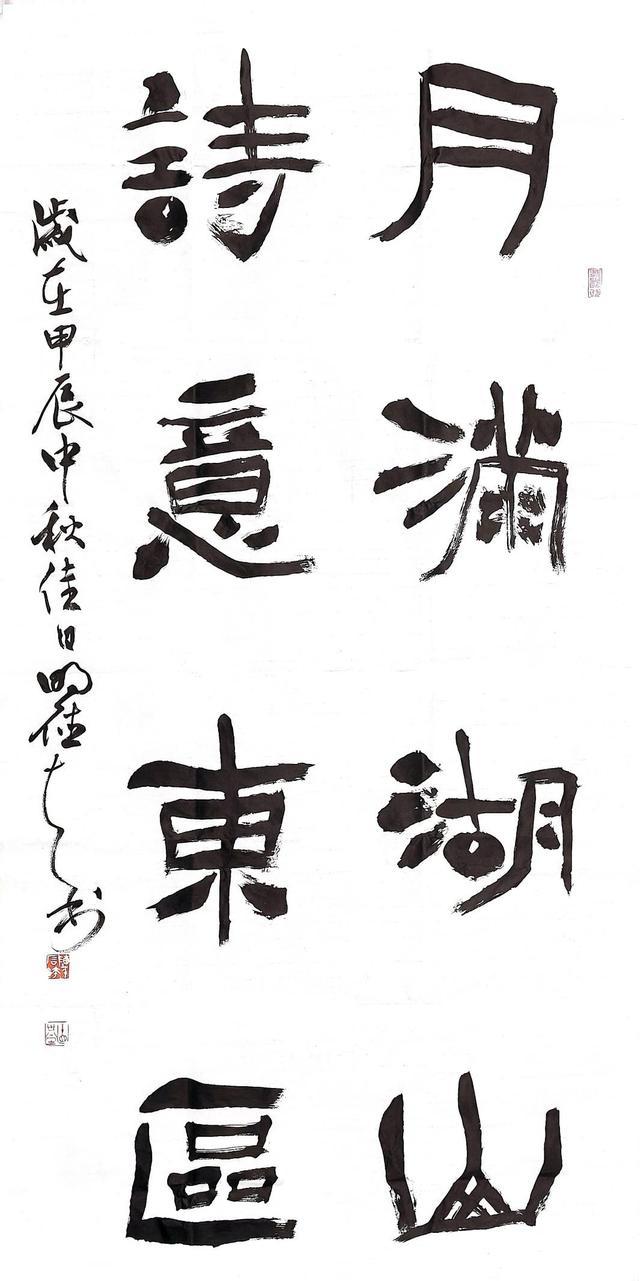 月滿湖山
詩意東區
歲在甲辰中秋佳日